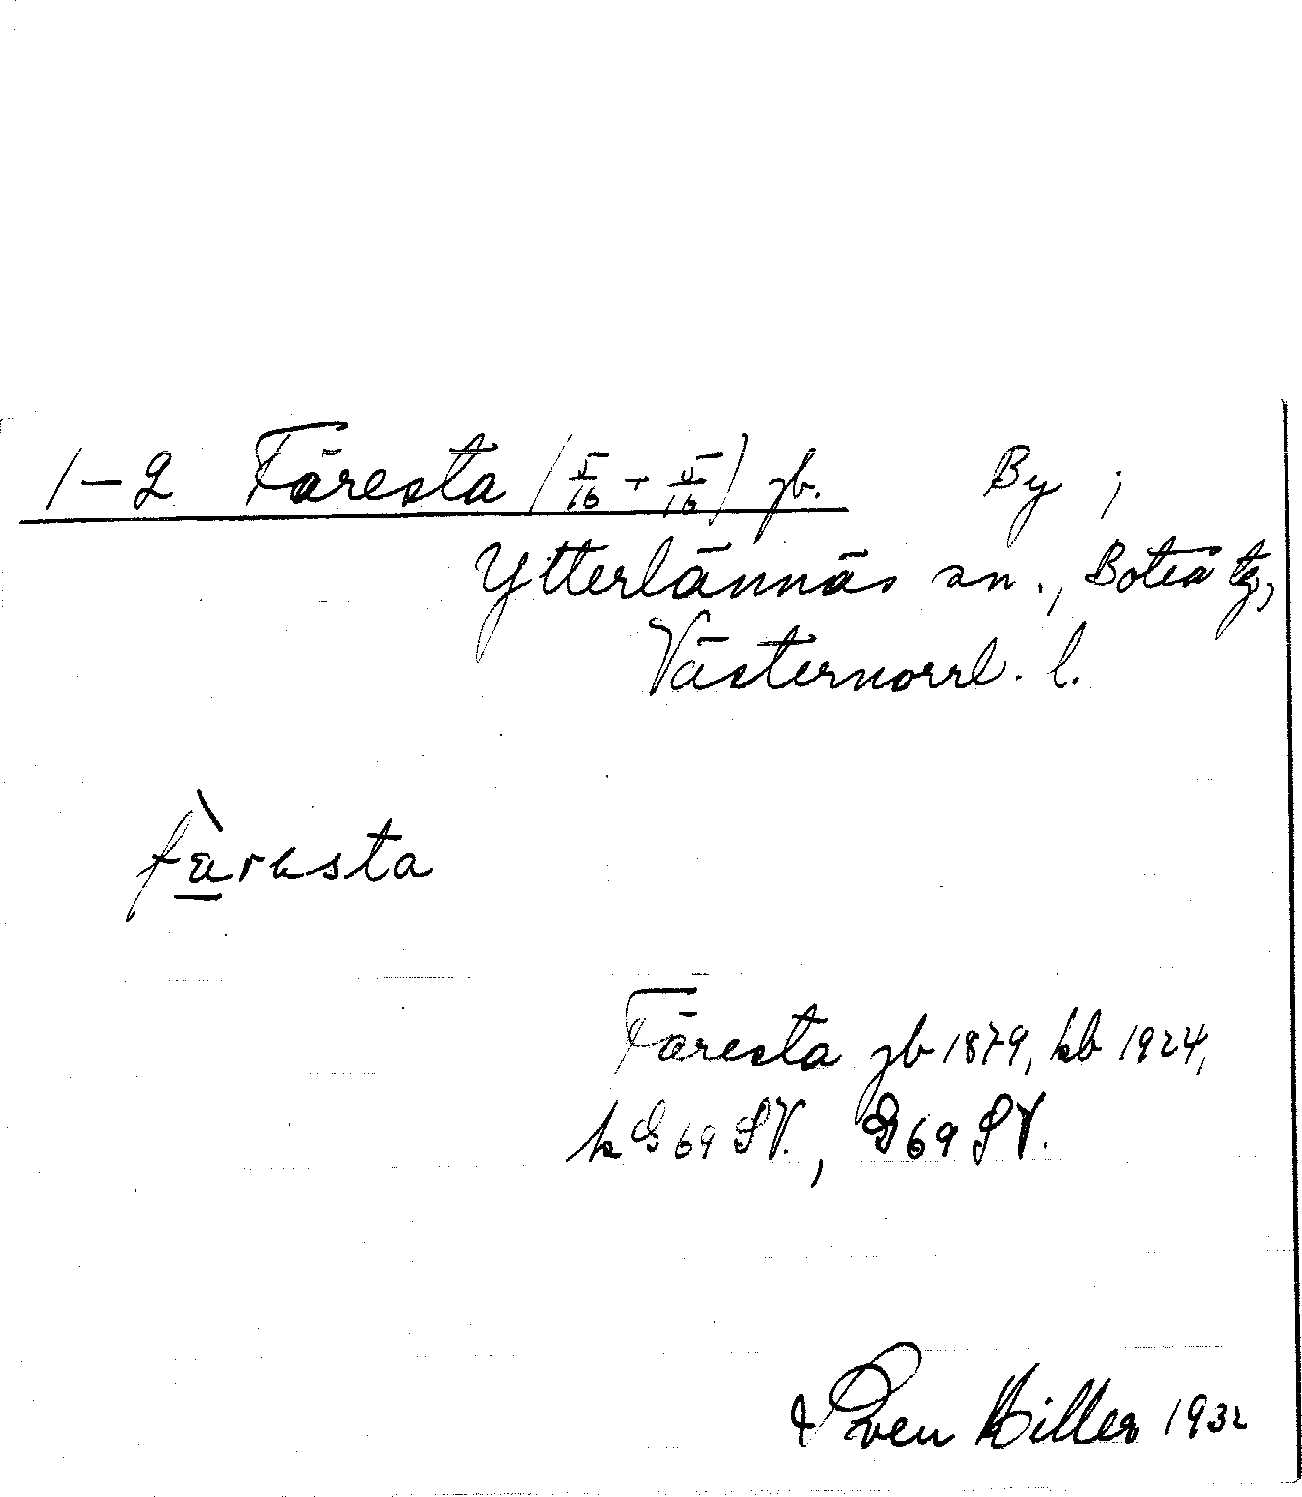 1–2 Färesta (5/16 + 5/16) jb. By ;
Ytterlännäs sn., Boteå tg,
Västernorrl. l.
fæ̀rɛsta
Färesta jb 1879, kb 1924,
k G 69 SV., G 69 SV.
Sven Hiller 1932